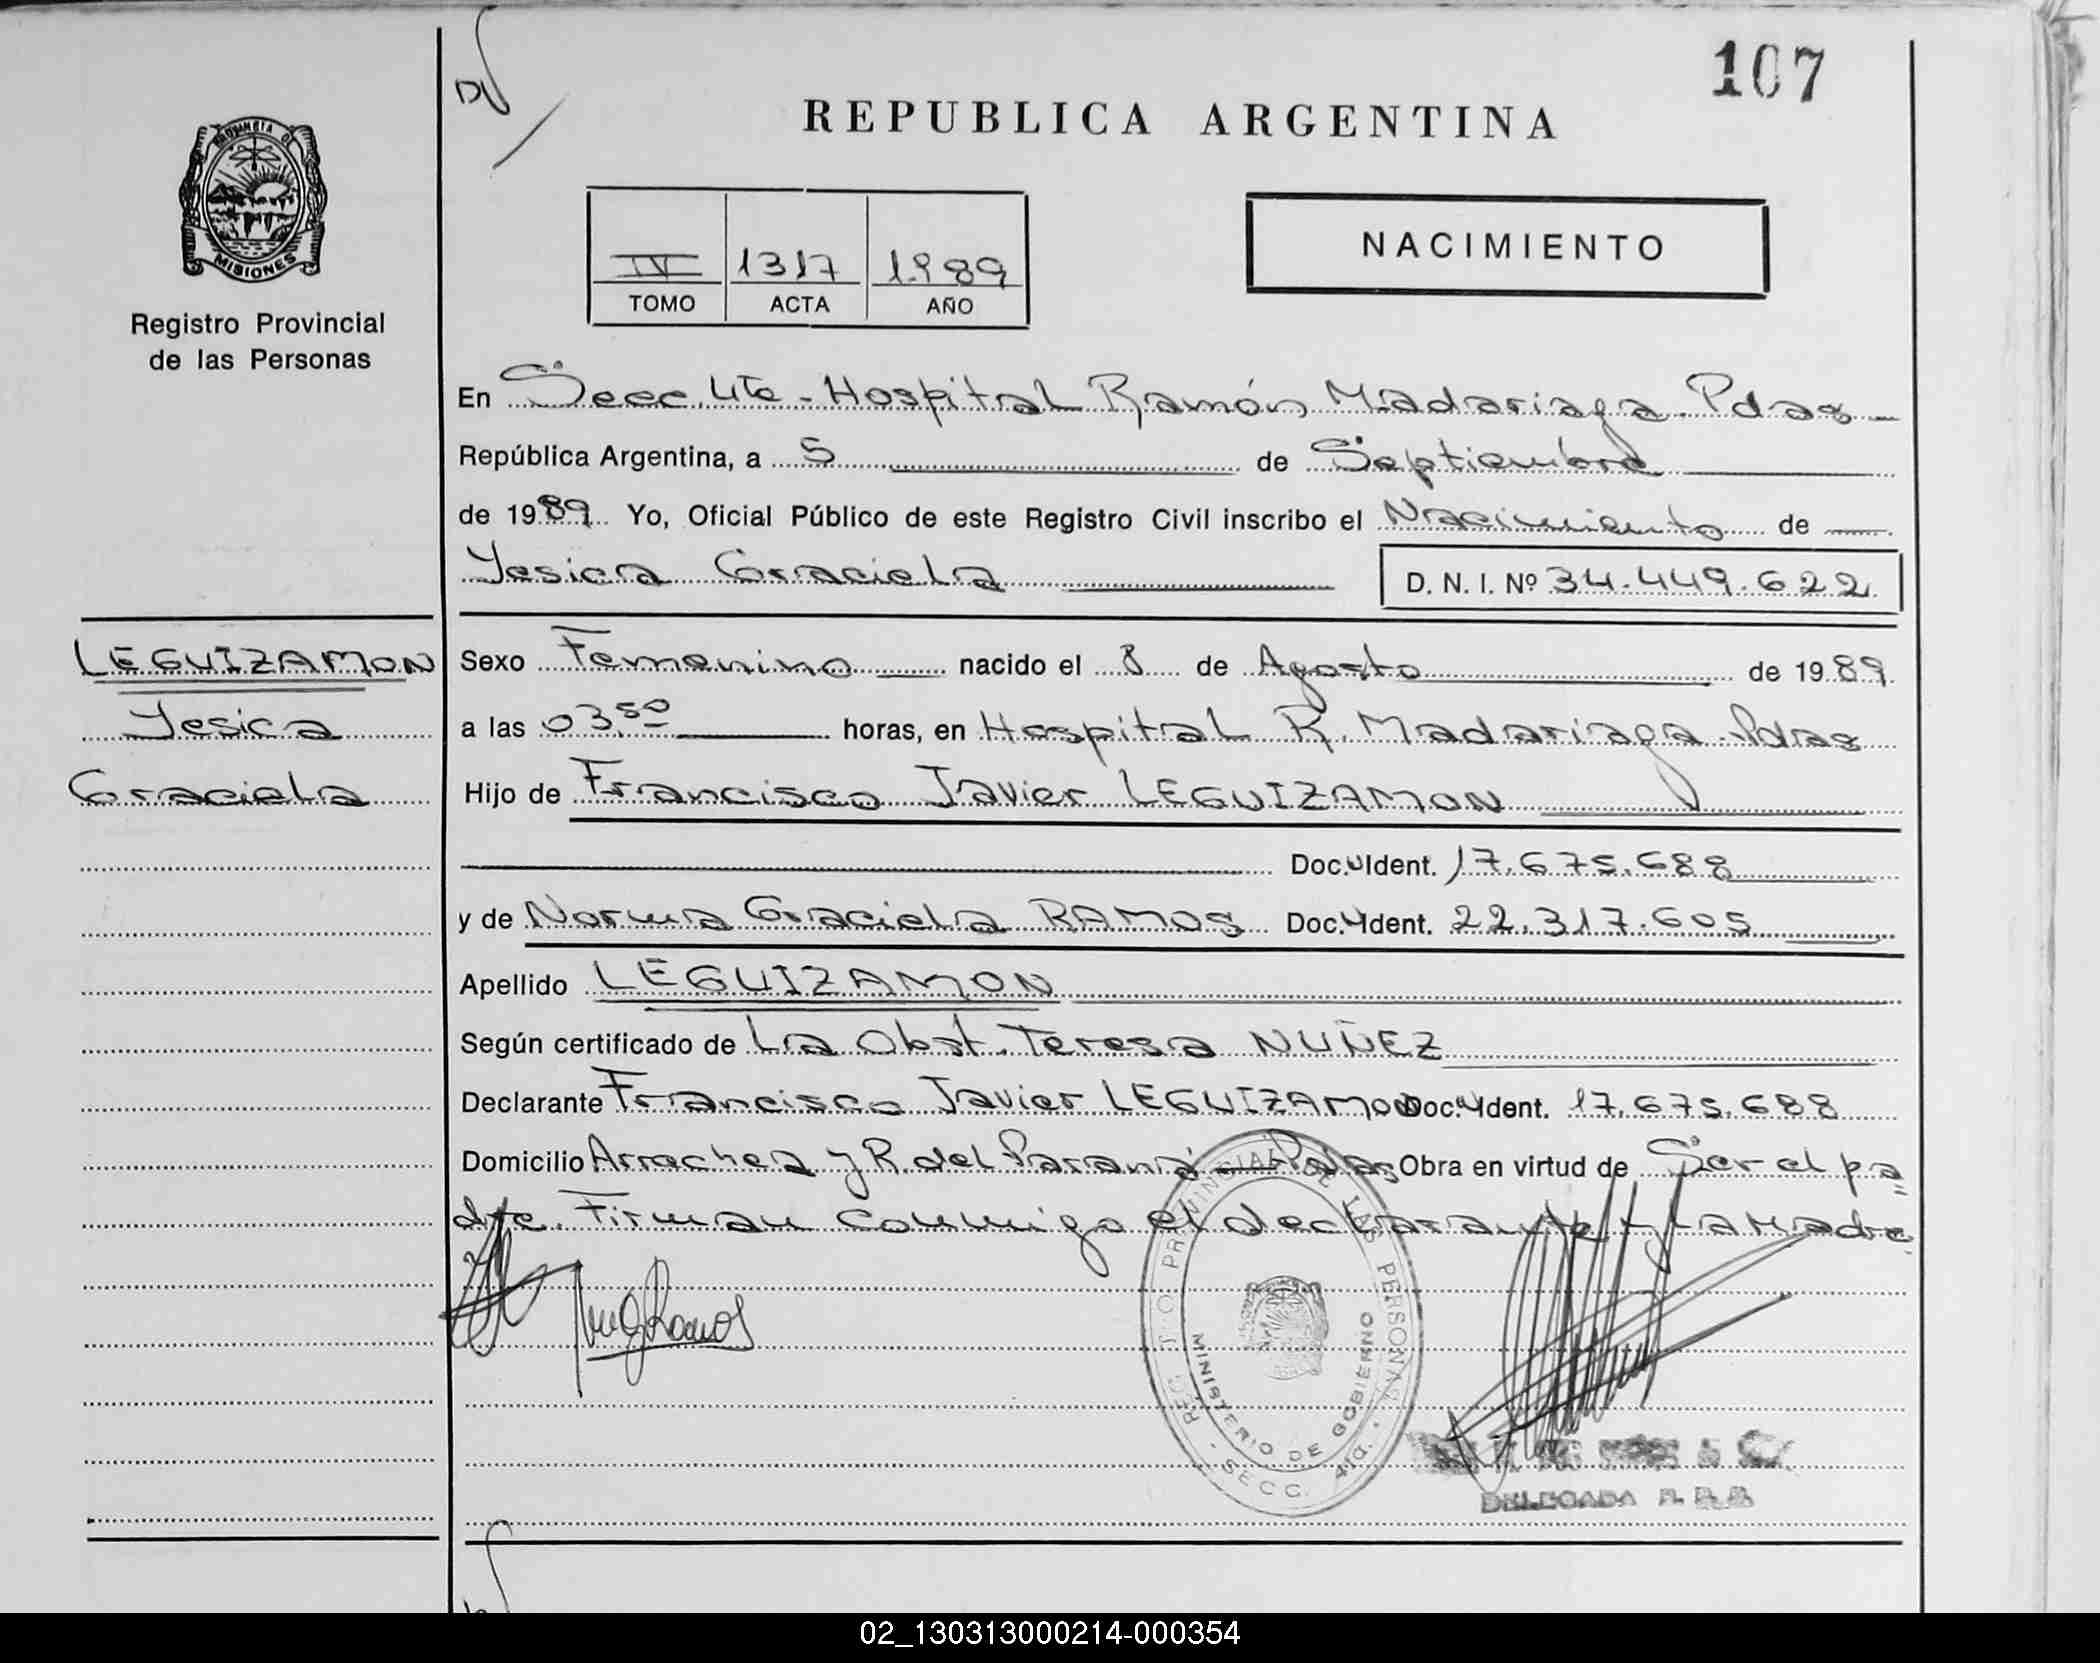 107
REPUBLICA ARGENTINA
PROVINCIA DE
MISIONES
Registro Provincial
de las Personas
IV 1317 1989
TOMO ACTA AÑO
NACIMIENTO
En Secc. 4ta - Hospital Ramón Madariaga. Pdas
República Argentina, a 5 de Septiembre
de 1989 Yo, Oficial Público de este Registro Civil inscribo el Nacimiento de
Yesica Graciela D. N. I. Nº 34.449.622
LEGUIZAMON
Yesica
Graciela
Sexo Femenino nacido el 8 de Agosto de 1989
a las 03,50 horas, en Hospital R. Madariaga. Pdas
Hijo de Francisco Javier LEGUIZAMON
Doc. Ident. 17.675.688
y de Norma Graciela RAMOS Doc. Ident. 22.317.605
Apellido LEGUIZAMON
Según certificado de La Obst. Teresa NUÑEZ
Declarante Francisco Javier LEGUIZAMON Doc. Ident. 17.675.688
Domicilio Arrechea y R. del Paraná - Pdas Obra en virtud de Ser el pa=
dre. Firman conmigo el declarante y La Madre
REG T O PROVINCIAL DE LAS PERSONAS
MINISTERIO DE GOBIERNO
SECC. 4ta.
DELEGADA
02_130313000214-000354